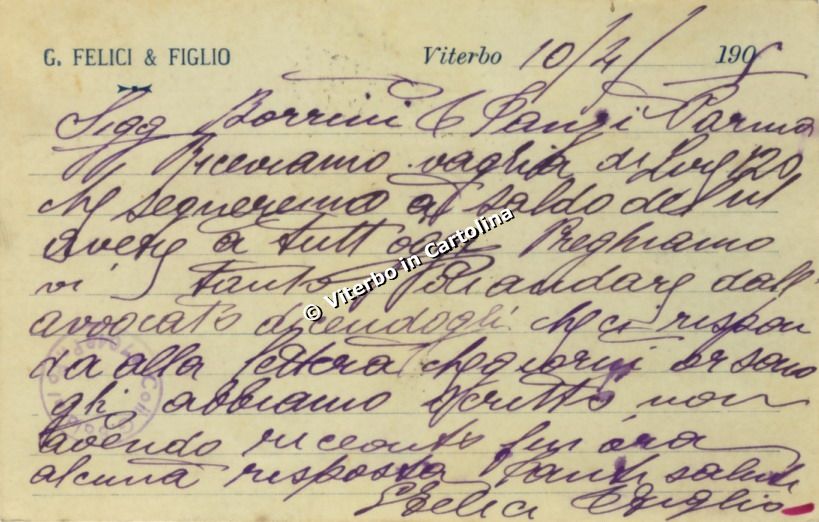 G. FELICI & FIGLIO Viterbo 10/4/ 1905
Sigg Borrini & Panzi Parma
Riceviamo vaglia di Lire 120
che segneremo a saldo del
avere a tutt'oggi Preghiamo
vi tanto, andare dall'
avvocato dicendogli che ci rispon
da alla lettera che giorni or sono
gli abbiamo scritto, non
avendo ricevuto fin ora
alcuna risposta Tanti saluti
G Felici & Figlio
© Viterbo in Cartolina